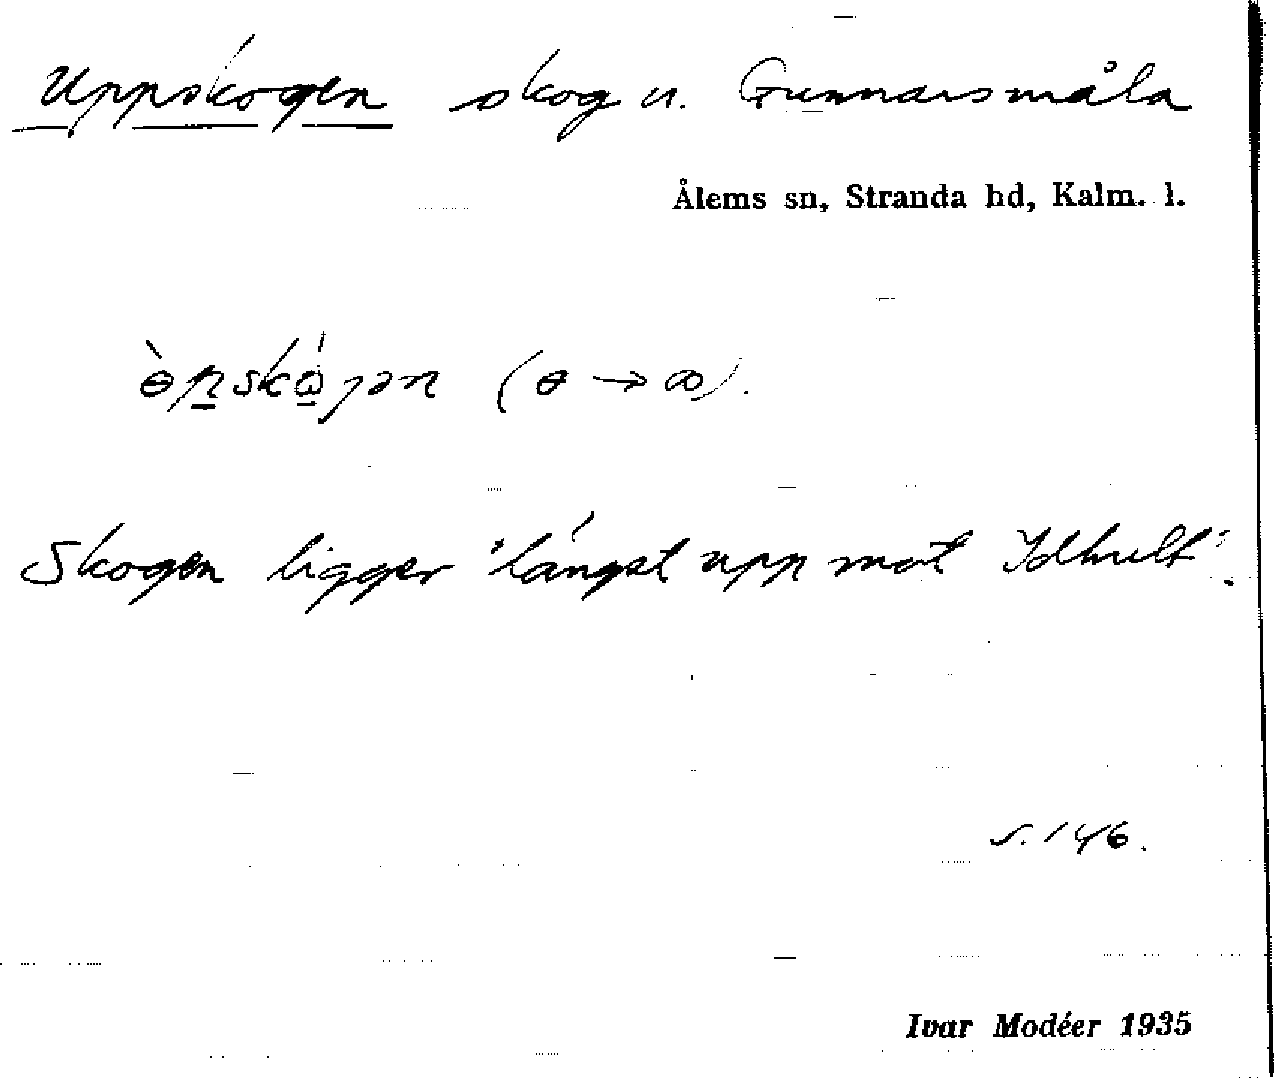 Uppskogen skog u. Gunnarsmåla
Ålems sn, Stranda hd, Kalm. l.
(ɵ → ꝏ).
Skogen ligger "längst upp mot Idhult".
s. 146.
Ivar Modéer 1935